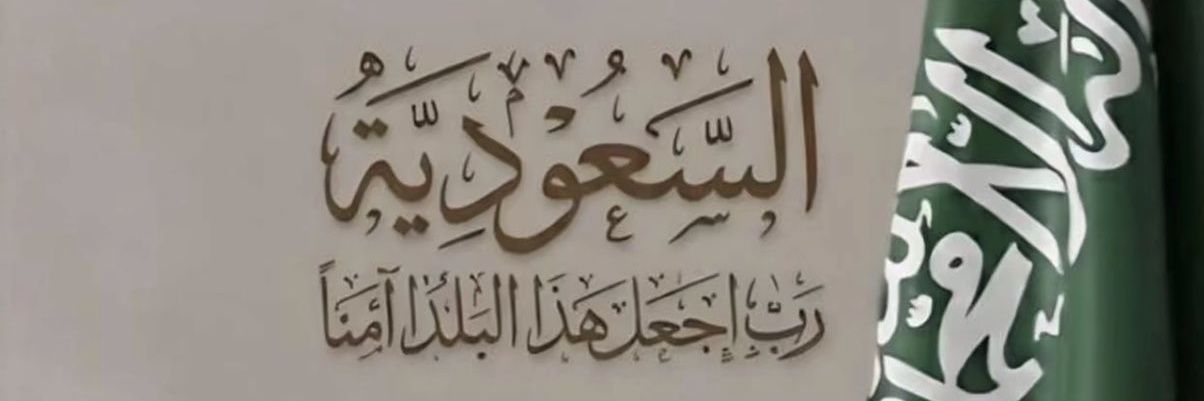 السَّعُوْدِيَّة
رَبِّ إجعَل هَذَا البَلدَا آمِنَاً